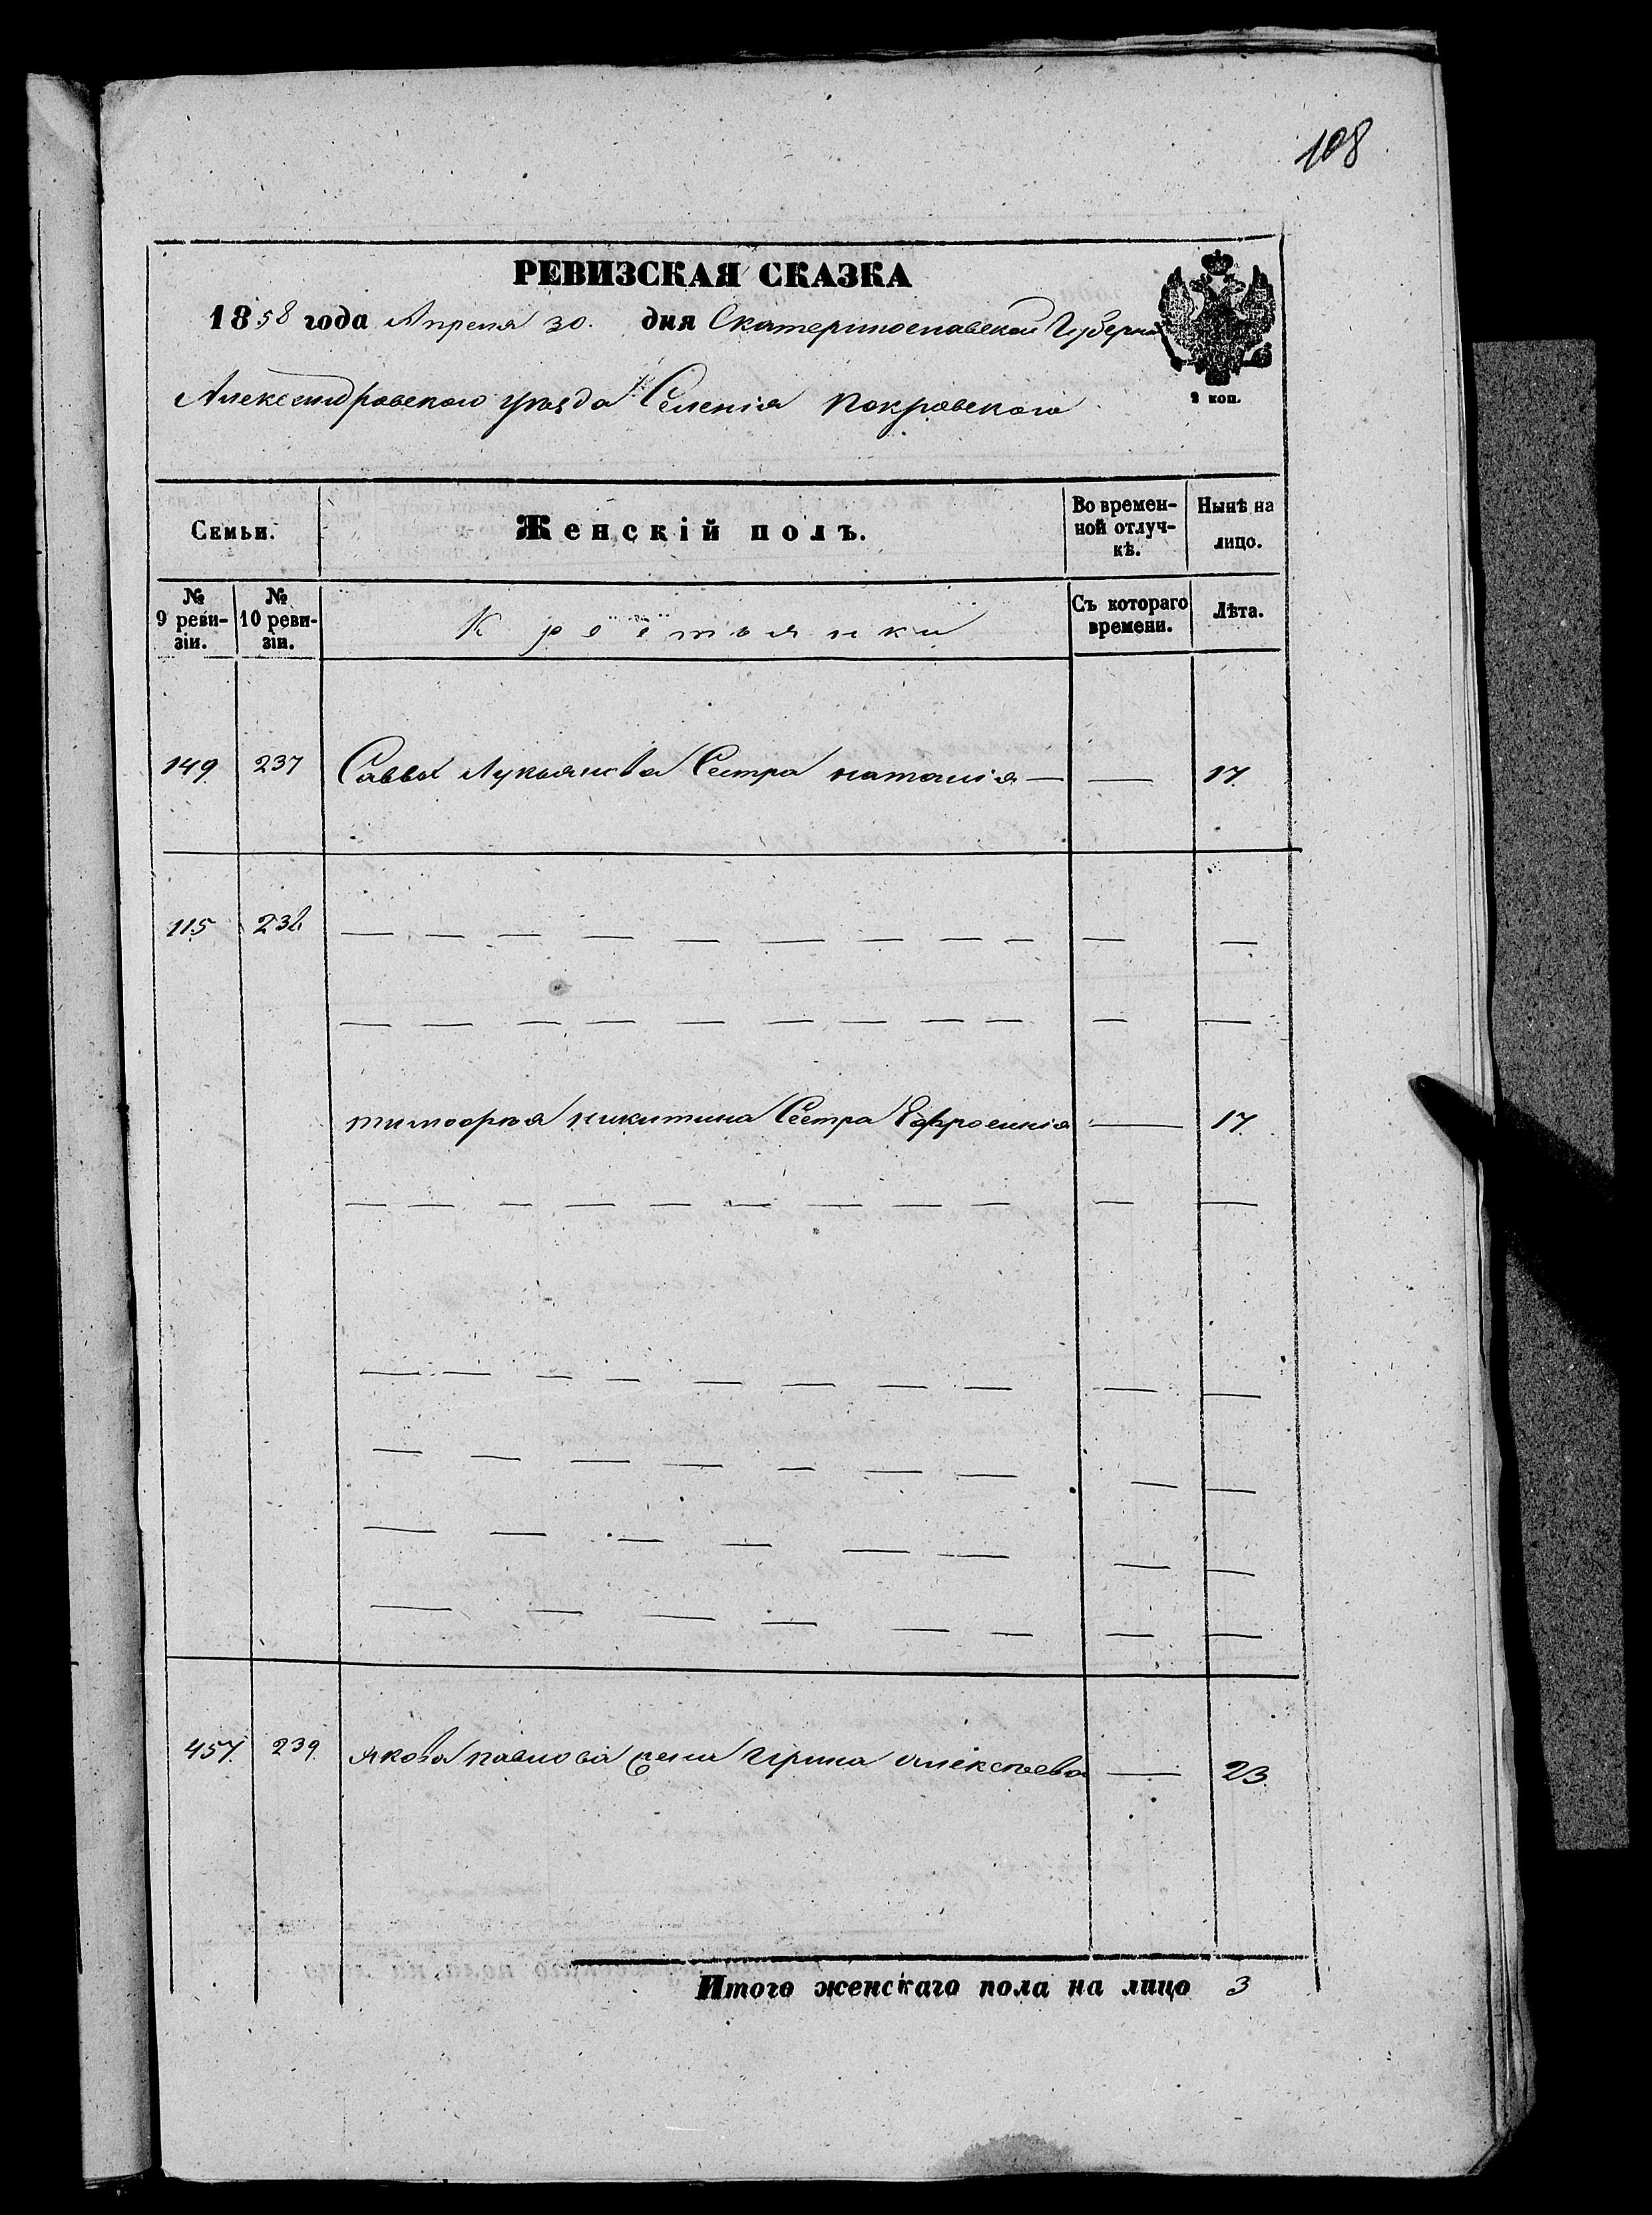 108
РЕВИЗСКАЯ СКАЗКА
1858 года Апреля 30. дня Екатеринославской Губерніи
2 коп.
Александровскаго уѣзда Селенія Покровскаго
Семьи.
Женскій полъ.
Во времен-
ной отлуч-
кѣ.
Нынѣ на
лицо.
№
9 реви-
зіи.
№
10 реви-
зіи.
Крестьянки
Съ котораго
времени.
Лѣта.
149 237 Саввы Лукьянова Сестра наталія — — 17.
115 238 — — — — — — — — — — —
— — — — — — — — — — —
тимофея никитина Сестра Ефросинія — 17.
— — — — — — — — — — —
— — — — — — — — — —
— — — — — — — — —
— — — — — — — —
— — — — — — — —
457. 239. якова павлова жена Ирина алексѣева — 23.
Итого женскаго пола на лицо 3